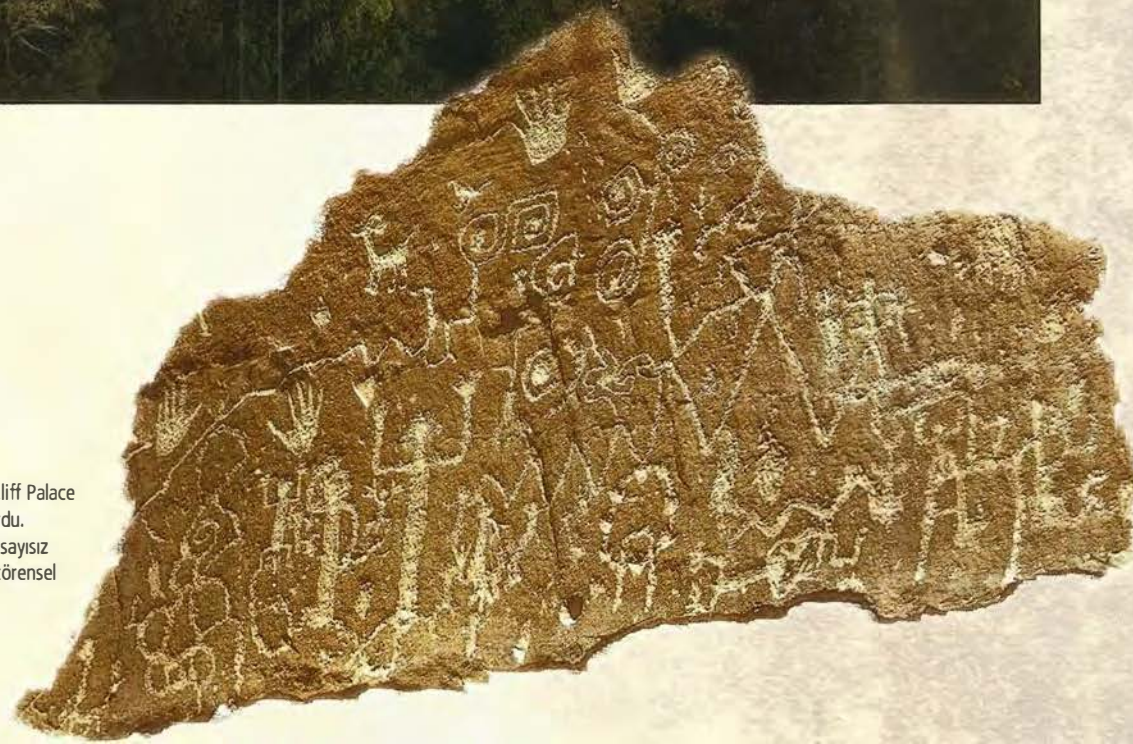 liff Palace
du.
sayısız
törensel